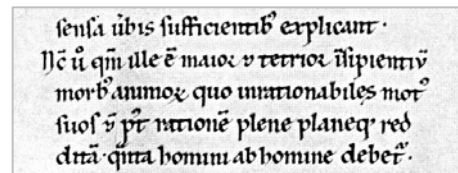 sensa ũbis sufficientib⁹ explicant.
Nc̄ ů qm̄ ille ē maior ⁊ tetrior īsipientiū
morb⁹ animoꝝ quo inrationabiles mot⁹
suos ñ p̄t rationē plene planeq; red
ditā
homini ab homine debet᷑.